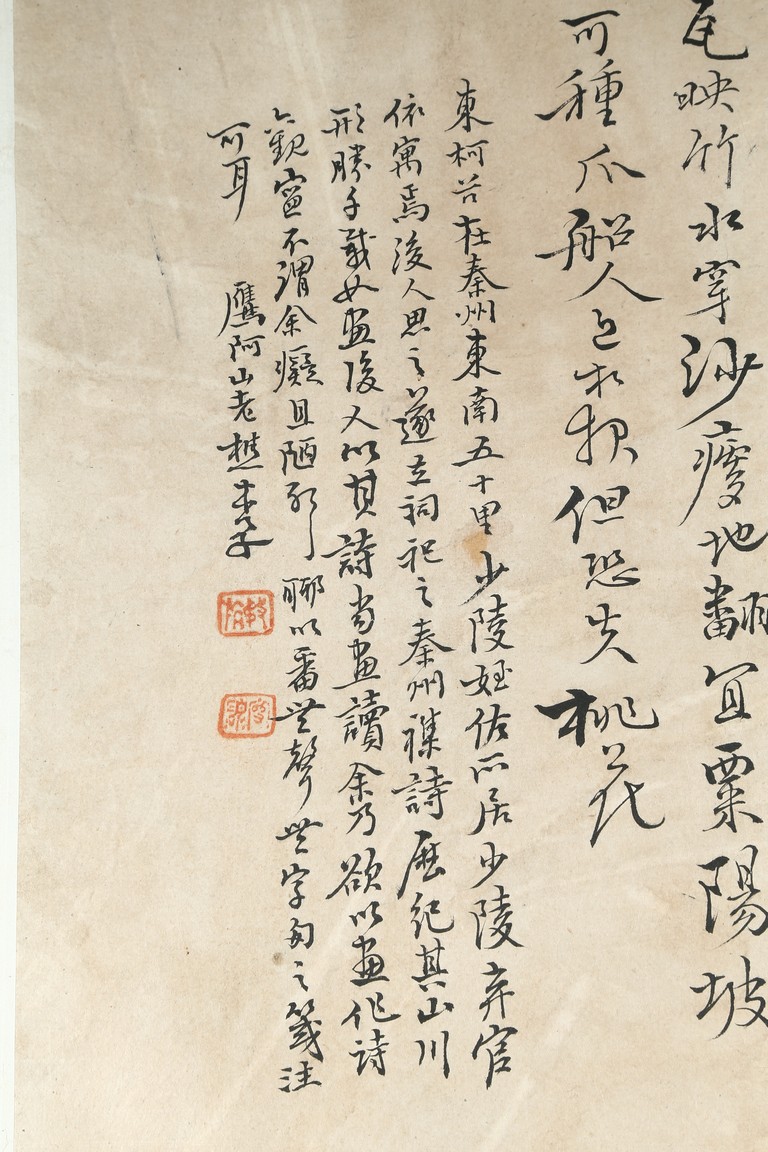 瓦映竹水穿沙瘦地翻宜粟陽坡
可種瓜船人近相報但恐失桃花
東柯谷在秦州東南五十里少陵姪佐所居少陵弃官
依寓焉後人思之遂立祠祀之秦州雜詩歷紀其山川
形勝千載如畫後人以其詩當畫讀余乃欲以畫作詩
觀寧不謂余癡且陋聊以當無聲無字句之箋注
可耳 鷹阿山老樵